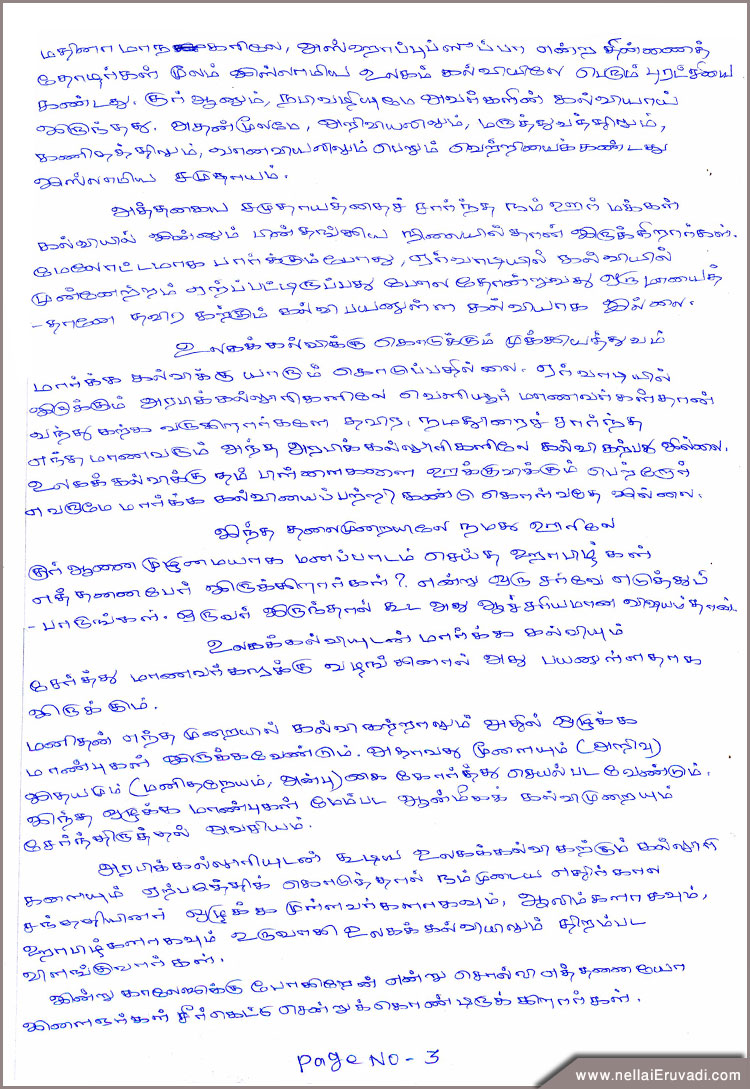 மதினா மாநகரிலே, அஸ்ஹாப்புஸ்ஸுப்பா என்ற திண்ணைத்
தோழர்கள் மூலம் இஸ்லாமிய உலகம் கல்வியிலே பெரும் புரட்சியை
கண்டது. குர்ஆனும், நபிவழியுமே அவர்களின் கல்வியாய்
இருந்தது. அதன்மூலமே, அறிவியலிலும், மருத்துவத்திலும்,
கணிதத்திலும், வானவியலிலும் பெறும் வெற்றியைக் கண்டது
இஸ்லாமிய சமுதாயம்.
அத்தகைய சமுதாயத்தைச் சார்ந்த நம் ஊர் மக்கள்
கல்வியில் இன்னும் பின்தங்கிய நிலையில்தான் இருக்கிறார்கள்.
மேலோட்டமாக பார்க்கும்போது, ஏர்வாடியில் கல்வியில்
முன்னேற்றம் ஏற்பட்டிருப்பது போல தோன்றுவது ஒரு மாயைத்
-தானே தவிர கற்கும் கல்வி பயனுள்ள கல்வியாக இல்லை.
உலகக்கல்விக்கு கொடுக்கும் முக்கியத்துவம்
மார்க்க கல்விக்கு யாரும் கொடுப்பதில்லை. ஏர்வாடியில்
இருக்கும் அரபிக்கல்லூரிகளிலே வெளியூர் மாணவர்கள்தான்
வந்து கற்க வருகிறார்களே தவிர, நமதூரைச் சார்ந்த
எந்த மாணவரும் அந்த அரபிக் கல்லூரிகளிலே கல்வி கற்பது இல்லை.
உலகக் கல்விக்கு தம் பிள்ளைகளை ஊக்குவிக்கும் பெற்றோர்
எவருமே மார்க்க கல்வியைப்பற்றி கண்டு கொள்வதே இல்லை.
இந்த தலைமுறையிலே நமது ஊரிலே
குர்ஆனை முழுமையாக மனப்பாடம் செய்த ஹாபிழ்கள்
எத்தனைபேர் இருக்கிறார்கள்? என்று ஒரு சர்வே எடுத்துப்
-பாருங்கள். ஒருவர் இருந்தால் கூட அது ஆச்சரியமான விஷயம்தான்.
உலகக்கல்வியுடன் மார்க்க கல்வியும்
சேர்த்து மாணவர்களுக்கு வழங்கினால் அது பயனுள்ளதாக
இருக்கும்.
மனிதன் எந்த முறையில் கல்வி கற்றாலும் அதில் ஒழுக்க
மாண்புகள் இருக்கவேண்டும். அதாவது மூளையும் (அறிவு)
இதயமும் (மனிதநேயம், அன்பு) கை கோர்த்து செயல்பட வேண்டும்.
இந்த ஒழுக்க மாண்புகள் மேம்பட ஆன்மீகக் கல்விமுறையும்
சேர்ந்திருத்தல் அவசியம்.
அரபிக்கல்லூரியுடன் கூடிய உலகக்கல்வி கற்கும் கல்லூரி
களையும் ஏற்படுத்திக் கொடுத்தால் நம்முடைய எதிர்கால
சந்ததியினர் ஒழுக்கமுள்ளவர்களாகவும், ஆலிம்களாகவும்,
ஹாபிழ்களாகவும் உருவாகி உலகக் கல்வியிலும் திறம்பட
விளங்குவார்கள்.
இன்று காலேஜுக்கு போகிறேன் என்று சொல்லி எத்தனையோ
இளைஞர்கள் சீர்கெட்டு சென்றுக்கொண்டிருக்கிறார்கள்.
Page No - 3
www.nellaiEruvadi.com